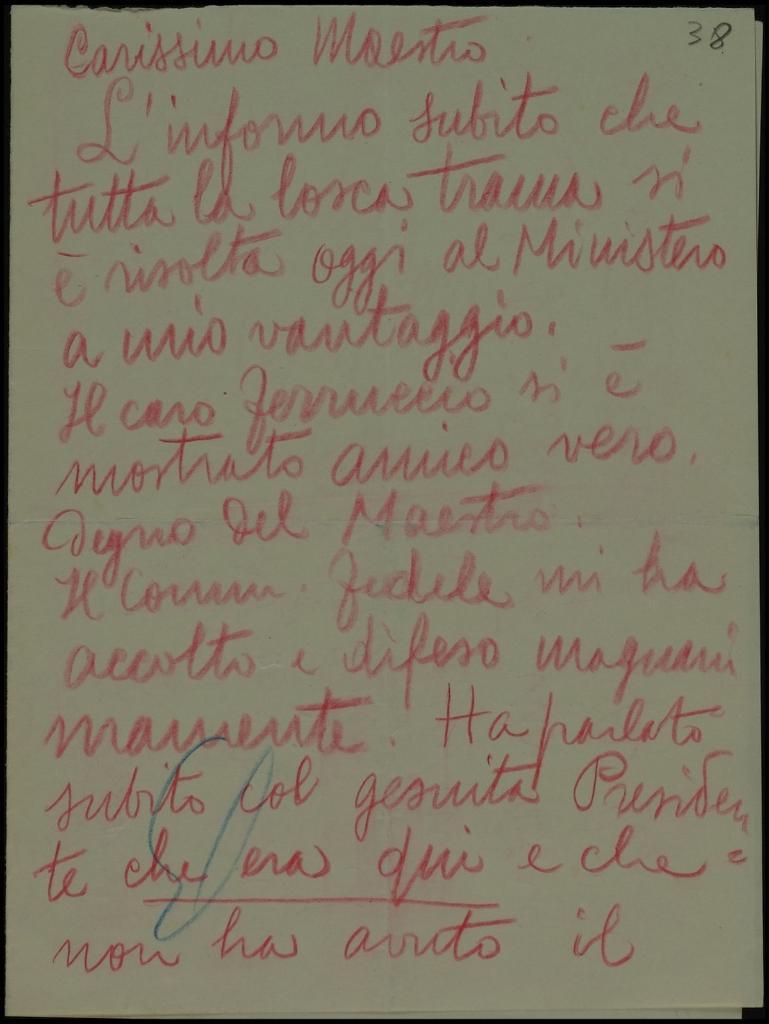 38
Carissimo Maestro.
L'informo subito che
tutta la losca trama si
è risolta oggi al Ministero
a mio vantaggio.
Il caro Ferruccio si è
mostrato amico vero.
Degno del Maestro.
Il Comm. Fedele mi ha
accolto e difeso magnani
mamente. Ha parlato
subito col gesuita Presiden
te che era qui e che =
non ha avuto il